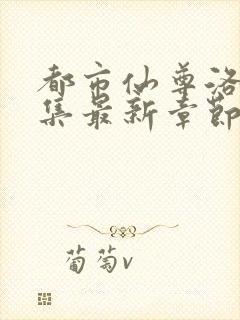 都市仙尊洛
集最新章节
葡萄v